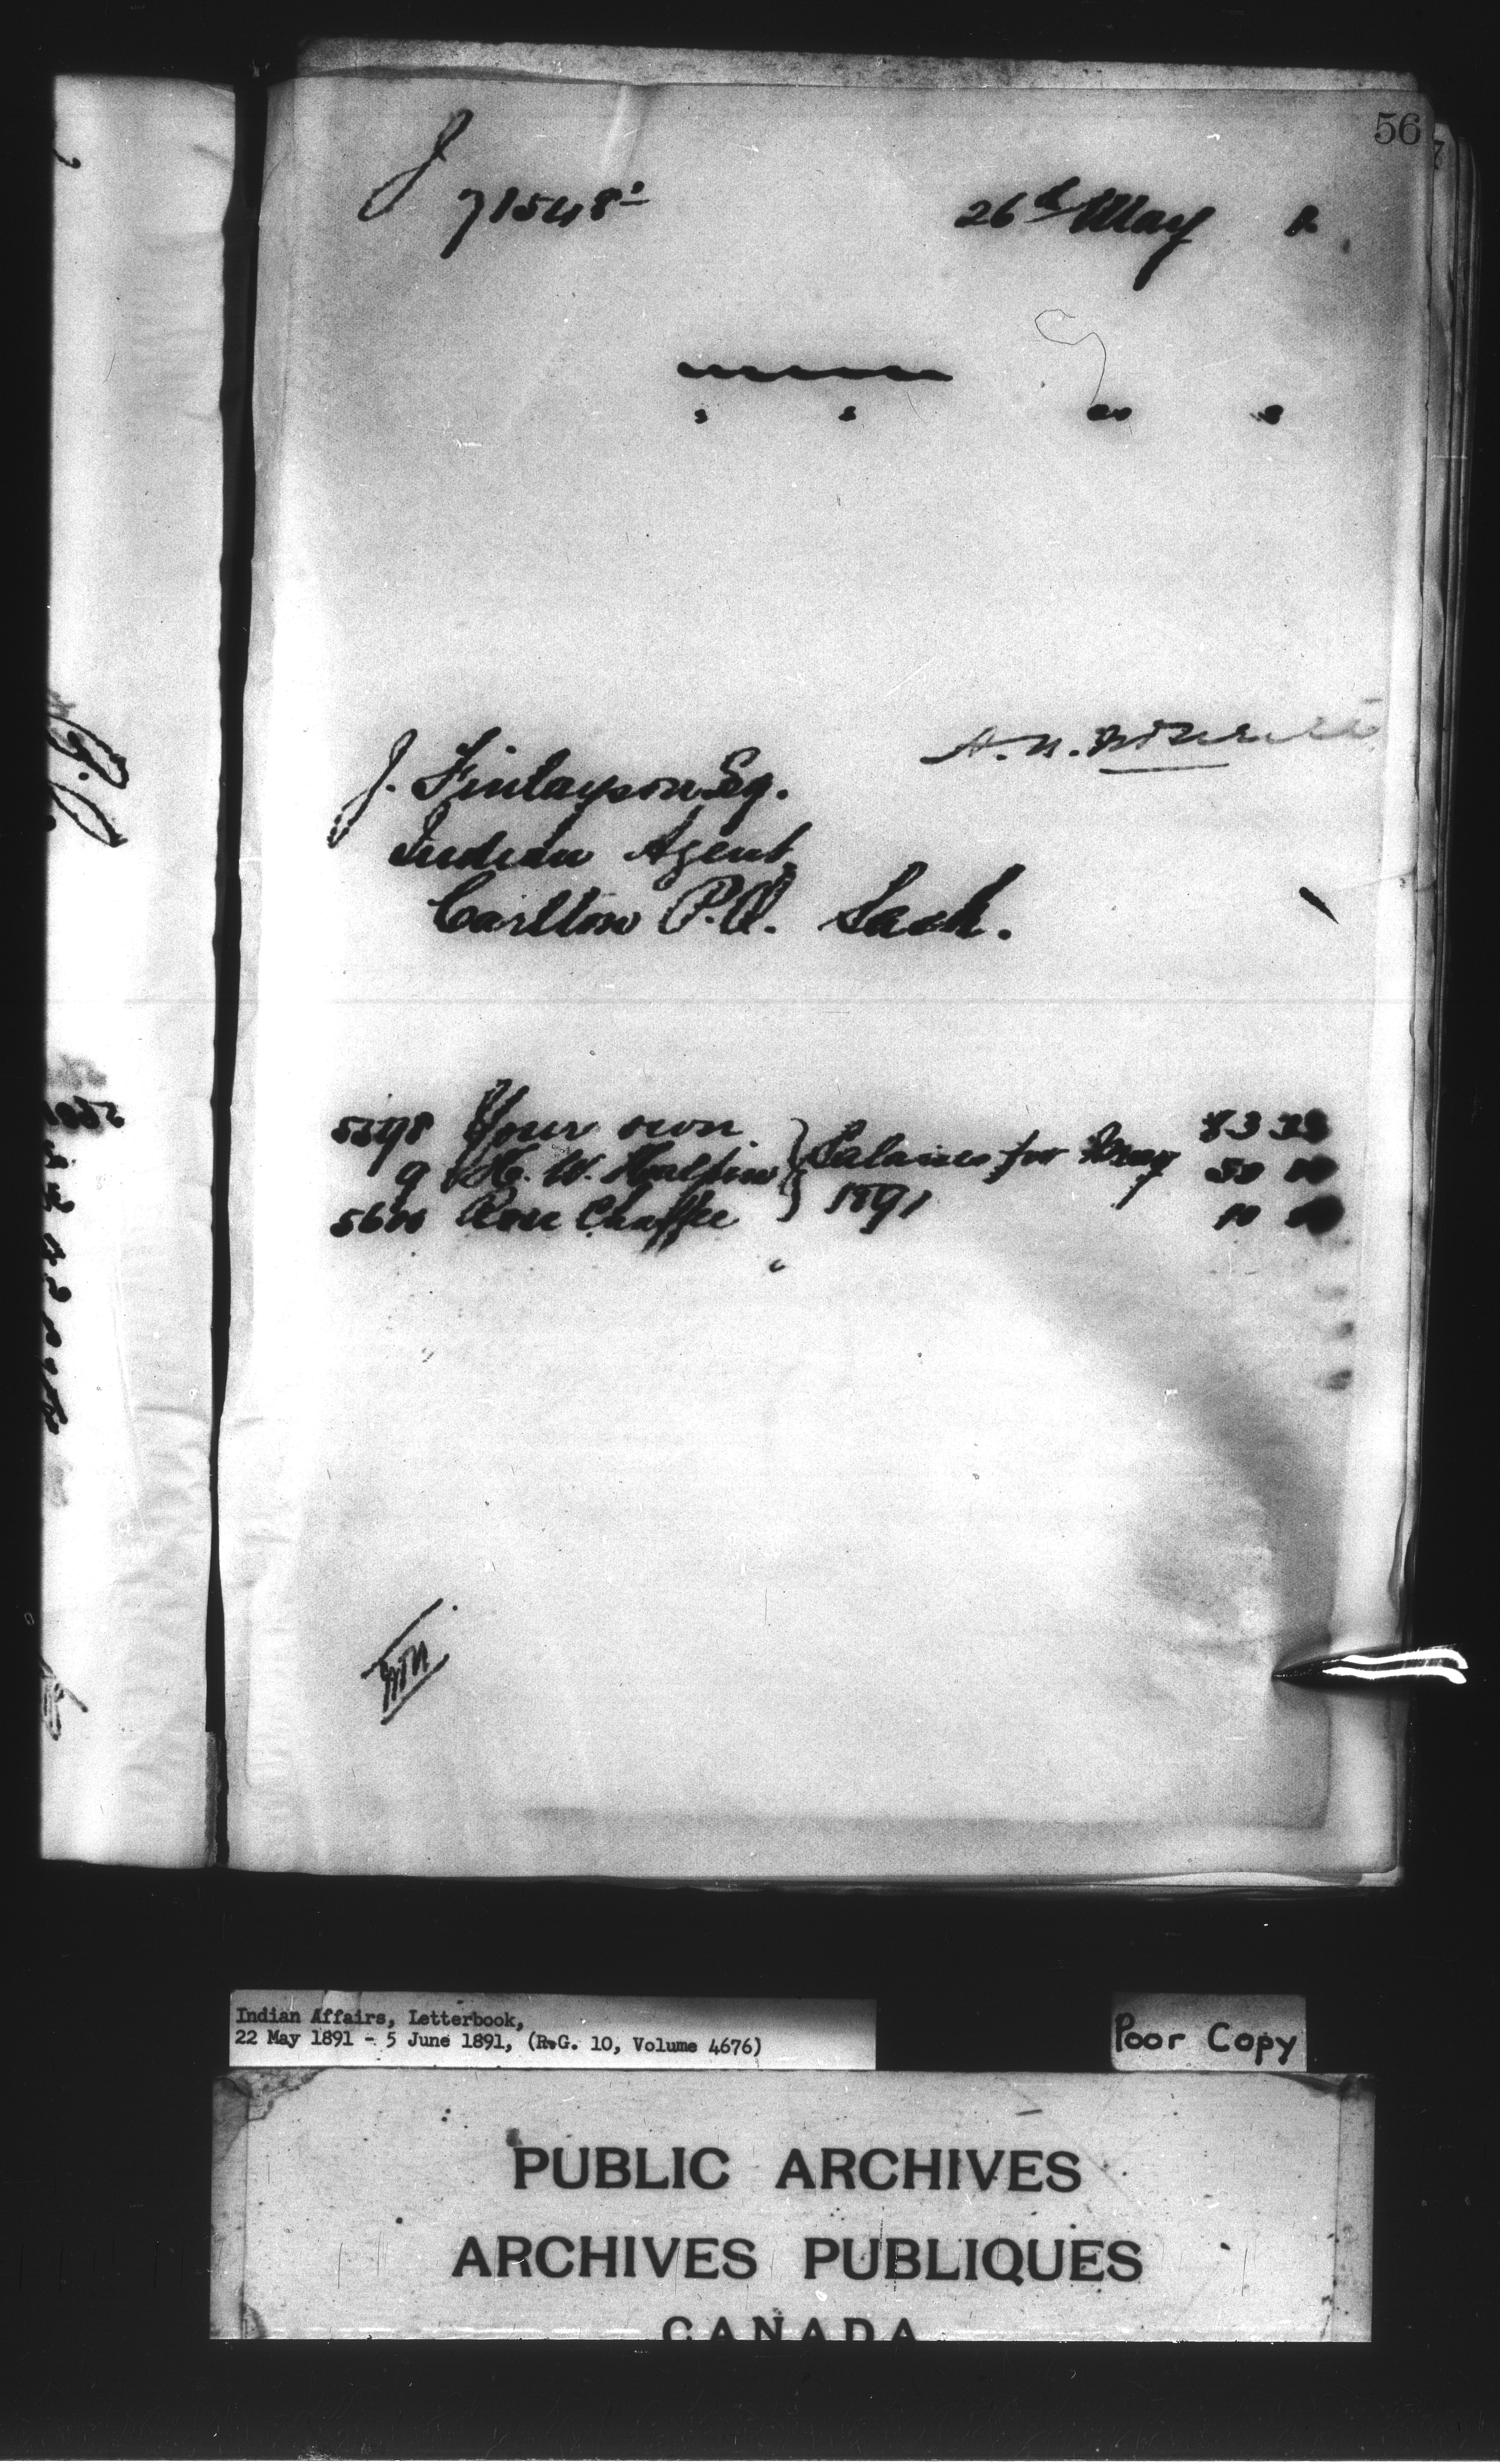 56
J
71548
26th May
J. Finlayson Esq.
Indian Agent,
Carlton P.O. Sask.
5598 Your own
9 H. W. Halpin
5600 Rose Chaffee
Salaries for May
1891
83 33
50 00
10 00
Indian Affairs, Letterbook,
22 May 1891 - 5 June 1891, (R.G. 10, Volume 4676)
Poor Copy
PUBLIC ARCHIVES
ARCHIVES PUBLIQUES
CANADA